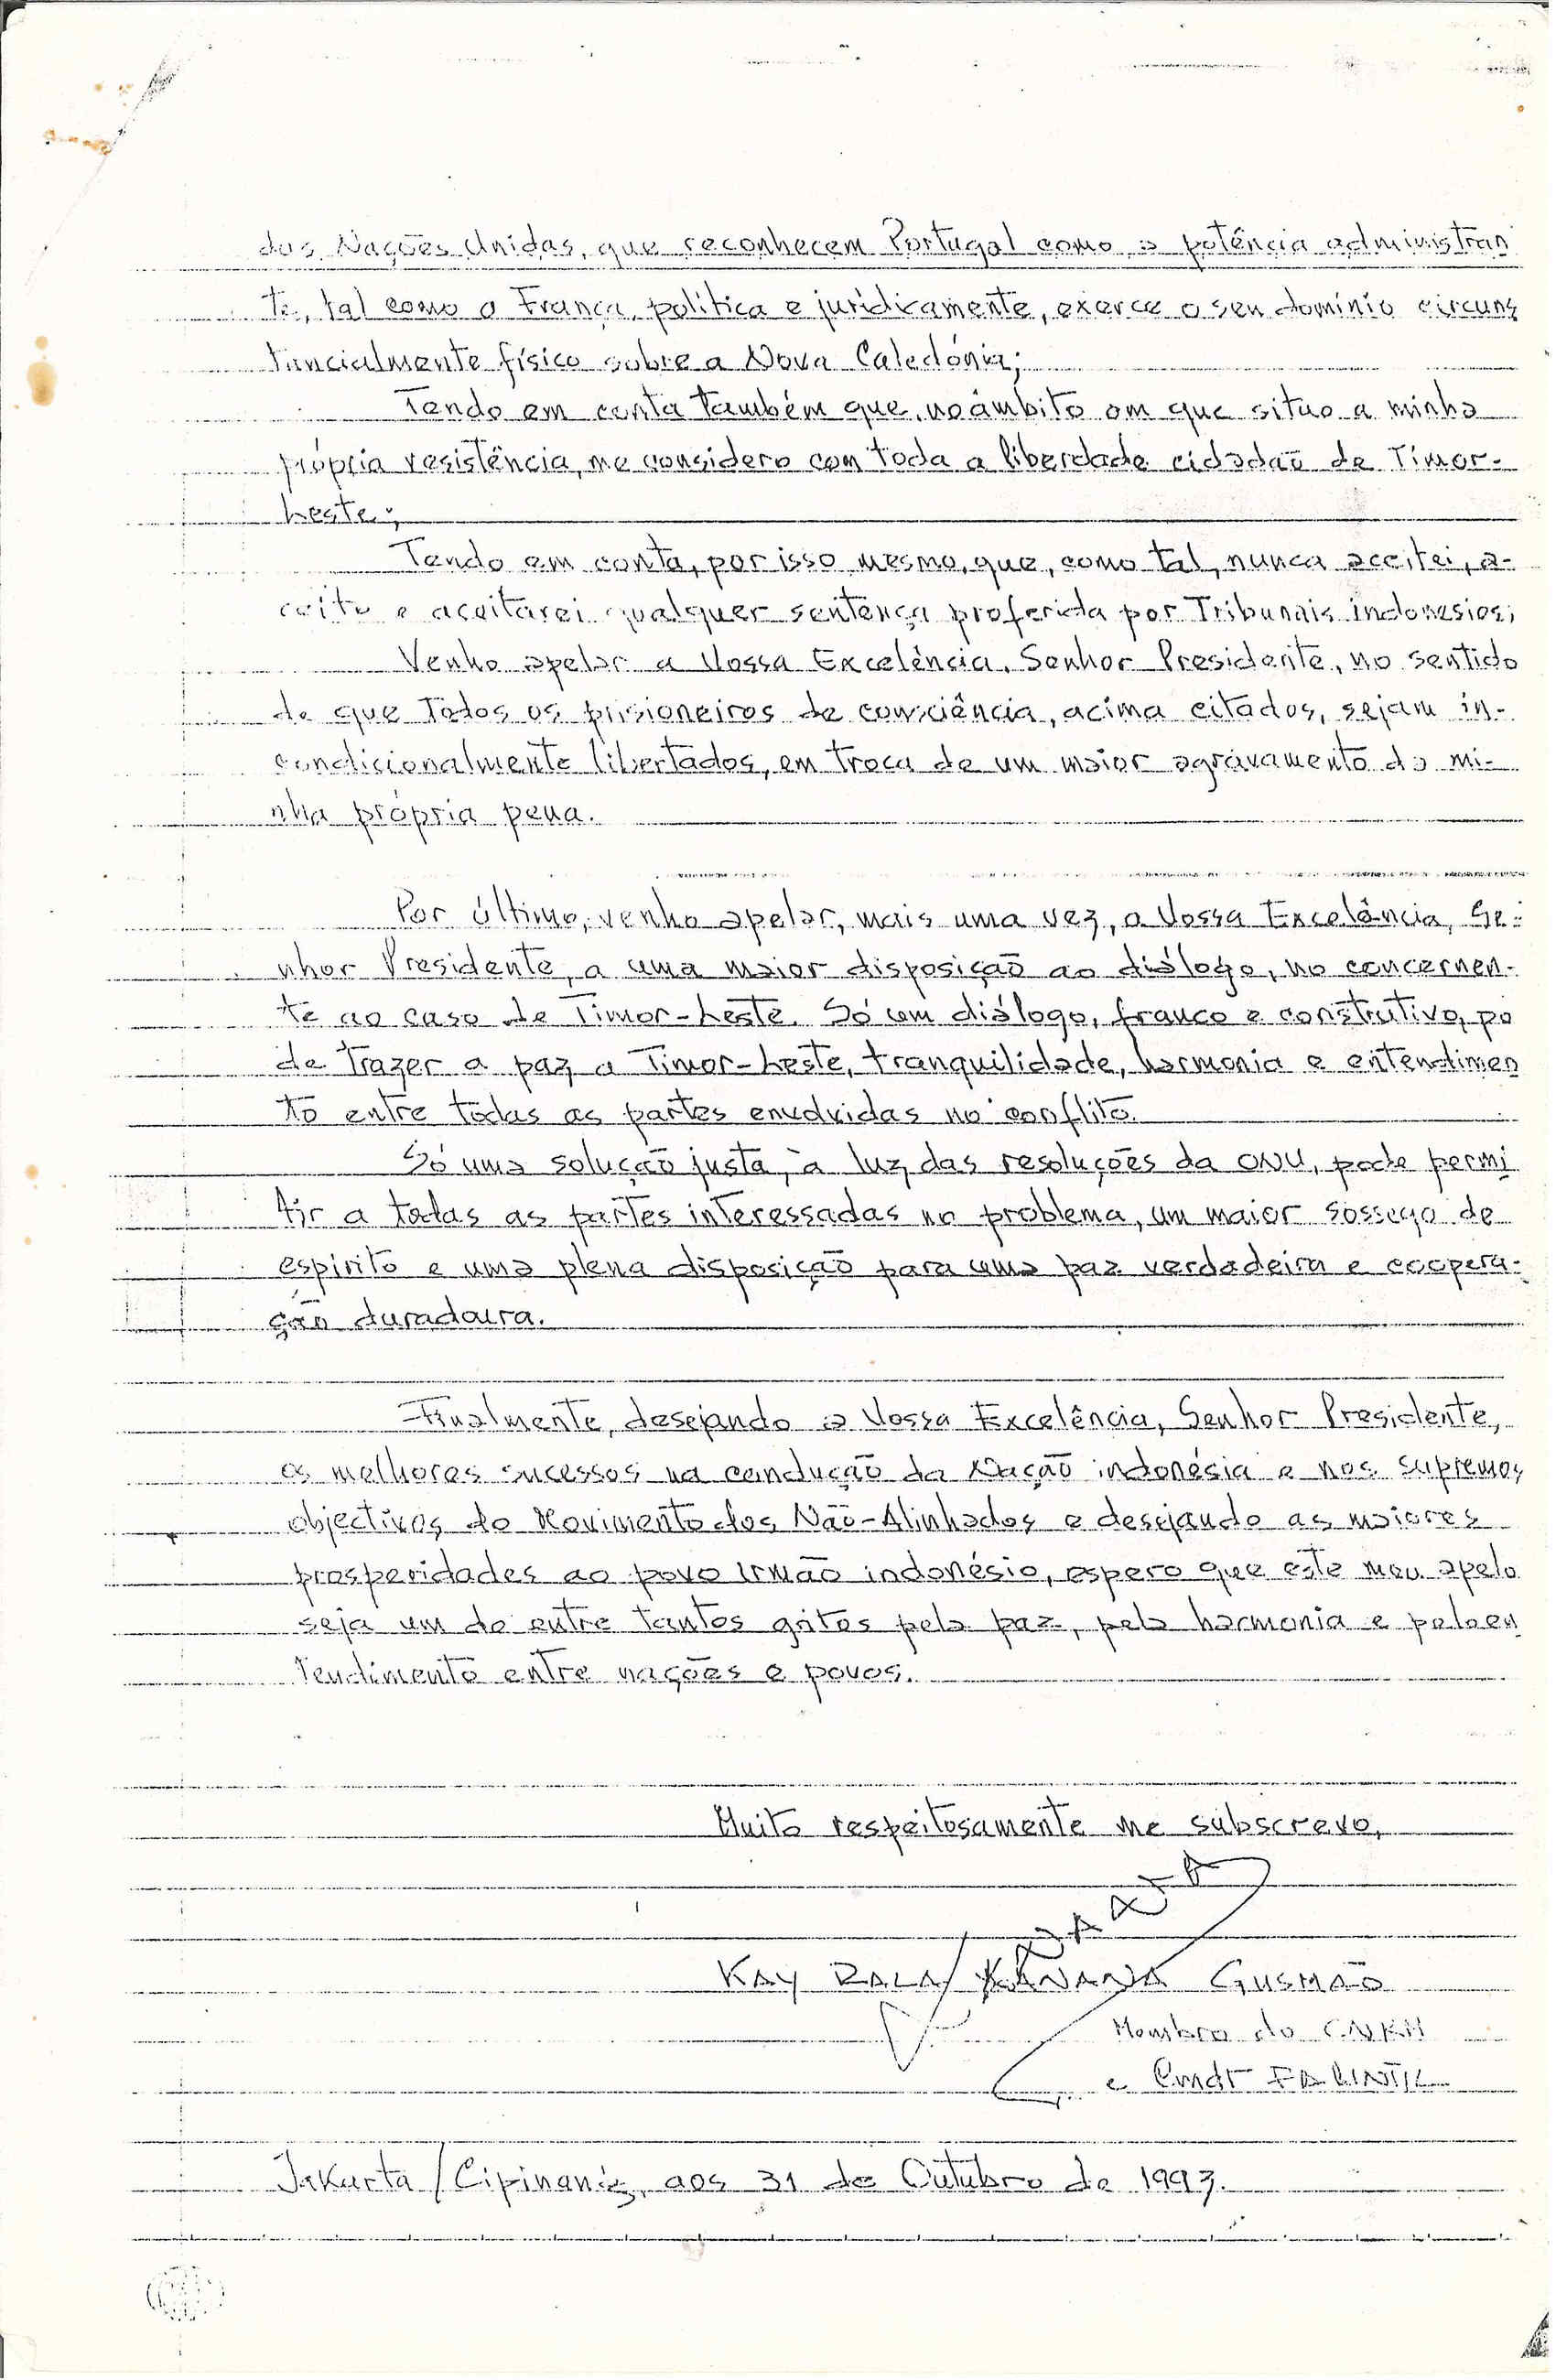 das Nações Unidas, que reconhecem Portugal como a potência administran
te, tal como a França, política e juridicamente, exerce o seu domínio circuns
tancialmente físico sobre a Nova Caledónia;
Tendo em conta também que, no âmbito em que situo a minha
própria resistência, me considero com toda a liberdade cidadão de Timor-
Leste;
Tendo em conta, por isso mesmo, que, como tal, nunca aceitei, a-
ceito e aceitarei qualquer sentença proferida por Tribunais indonésios;
Venho apelar a Vossa Excelência, Senhor Presidente, no sentido
de que todos os prisioneiros de consciência, acima citados, sejam in-
condicionalmente libertados, em troca de um maior agravamento da mi-
nha própria pena.
Por último, venho apelar, mais uma vez, a Vossa Excelência, Se-
nhor Presidente, a uma maior disposição ao diálogo, no concernen-
te ao caso de Timor-Leste. Só um diálogo, franco e construtivo, po
de trazer a paz a Timor-Leste, tranquilidade, harmonia e entendimen
to entre todas as partes envolvidas no conflito.
Só uma solução justa, à luz das resoluções da ONU, pode permi
tir a todas as partes interessadas no problema, um maior sossego de
espírito e uma plena disposição para uma paz verdadeira e coopera-
ção duradoura.
Finalmente, desejando a Vossa Excelência, Senhor Presidente,
os melhores sucessos na condução da Nação indonésia e nos supremos
objectivos do Movimento dos Não-Alinhados e desejando as maiores
prosperidades ao povo irmão indonésio, espero que este meu apelo
seja um de entre tantos gritos pela paz, pela harmonia e pelo en
tendimento entre nações e povos.
Muito respeitosamente me subscrevo,
KAY RALA XANANA GUSMÃO
Membro do CNRM
e Cmdt FALINTIL
Jakarta/Cipinang, aos 31 de Outubro de 1993.